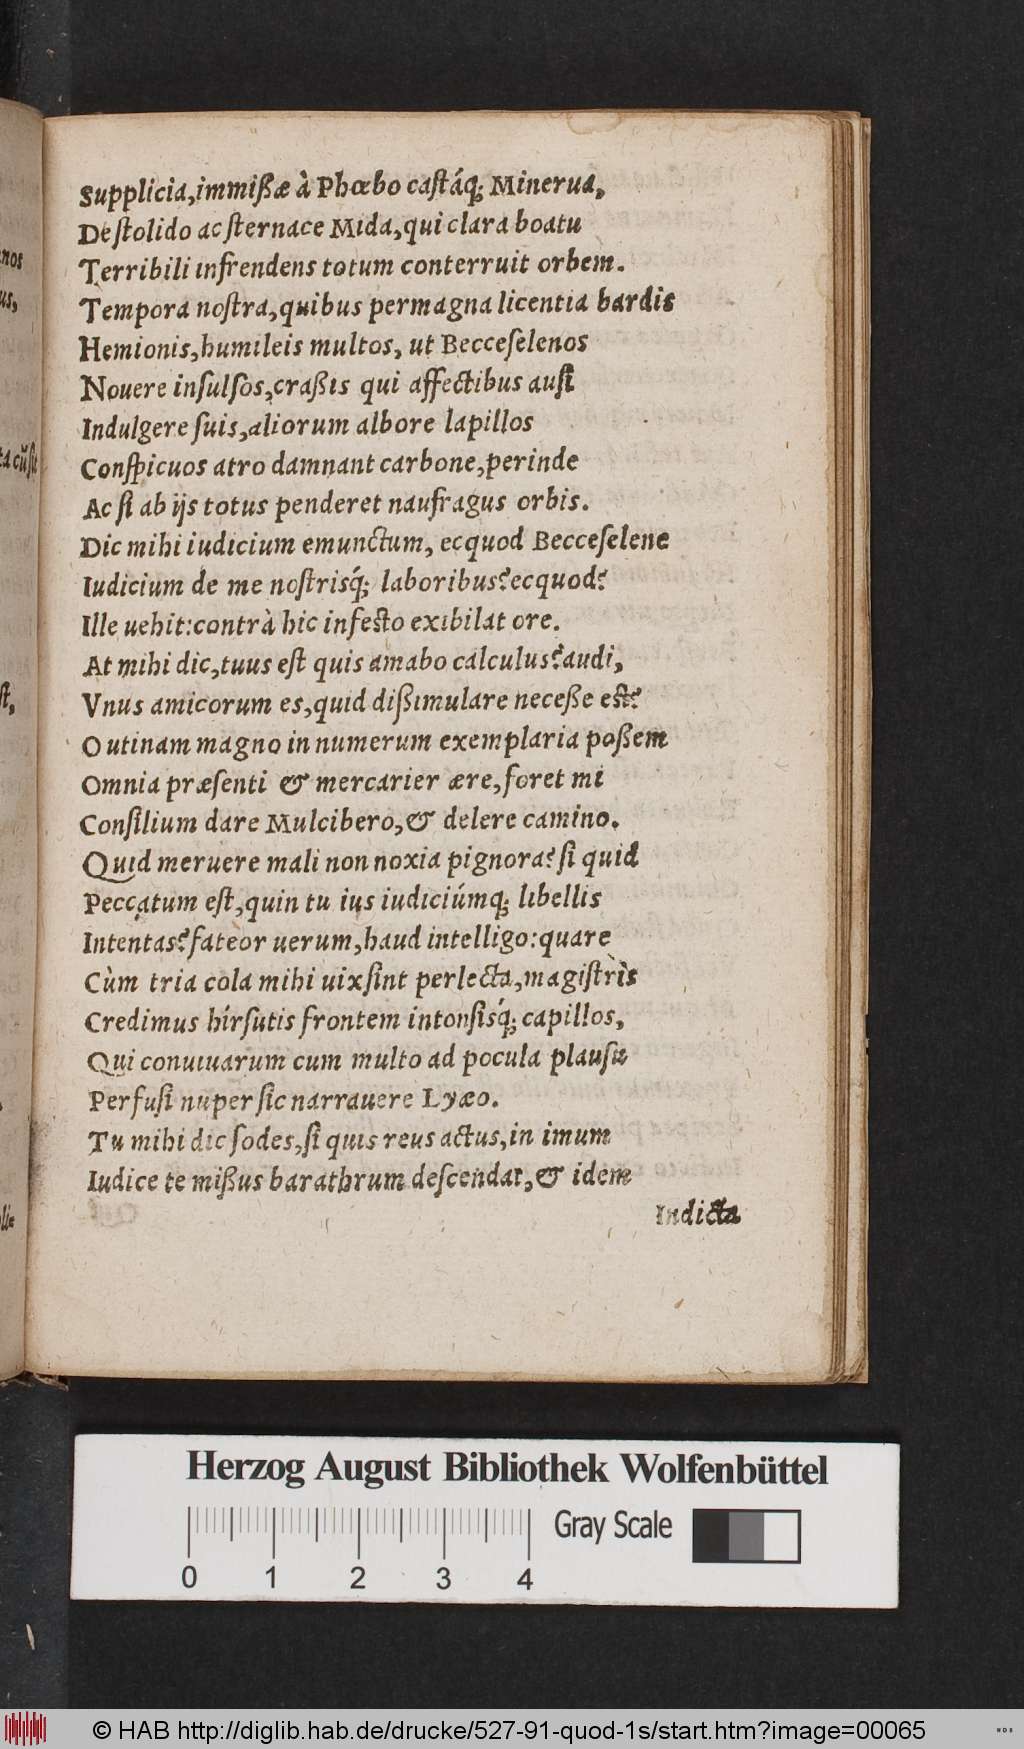 Supplicia, immißæ à Phœbo castáq; Minerua,
De stolido ac sternace Mida, qui clara boatu
Terribili infrendens totum conterruit orbem.
Tempora nostra, quibus permagna licentia bardis
Hemionis, humileis multos, ut Becceselenos
Nouere insulsos, craßis qui affectibus ausi
Indulgere suis, aliorum albore lapillos
Conspicuos atro damnant carbone, perinde
Ac si ab ijs totus penderet naufragus orbis.
Dic mihi iudicium emunctum, ecquod Becceselene
Iudicium de me nostrisq́; laboribus? ecquod?
Ille uehit: contrà hic infesto exibilat ore.
At mihi dic, tuus est quis amabo calculus? audi,
Vnus amicorum es, quid dißimulare neceße est?
O utinam magno in numerum exemplaria poßem
Omnia præsenti & mercarier ære, foret mi
Consilium dare Mulcibero, & delere camino.
Quid meruere mali non noxia pignora? si quid
Peccatum est, quin tu ius iudiciúmq; libellis
Intentas? fateor uerum, haud intelligo: quare
Cùm tria cola mihi uix sint perlecta, magistrìs
Credimus hírsutis frontem intonsisq́; capillos,
Qui conuiuarum cum multo ad pocula plausu
Perfusi nuper sic narrauere Lyæo.
Tu mihi dic sodes, si quis reus actus, in imum
Iudice te mißus barathrum descendat, & idem
Indicta
nos
us,
ta cũ su
st,
lie
Herzog August Bibliothek Wolfenbüttel
Gray Scale
0 1 2 3 4
© HAB http://diglib.hab.de/drucke/527-91-quod-1s/start.htm?image=00065